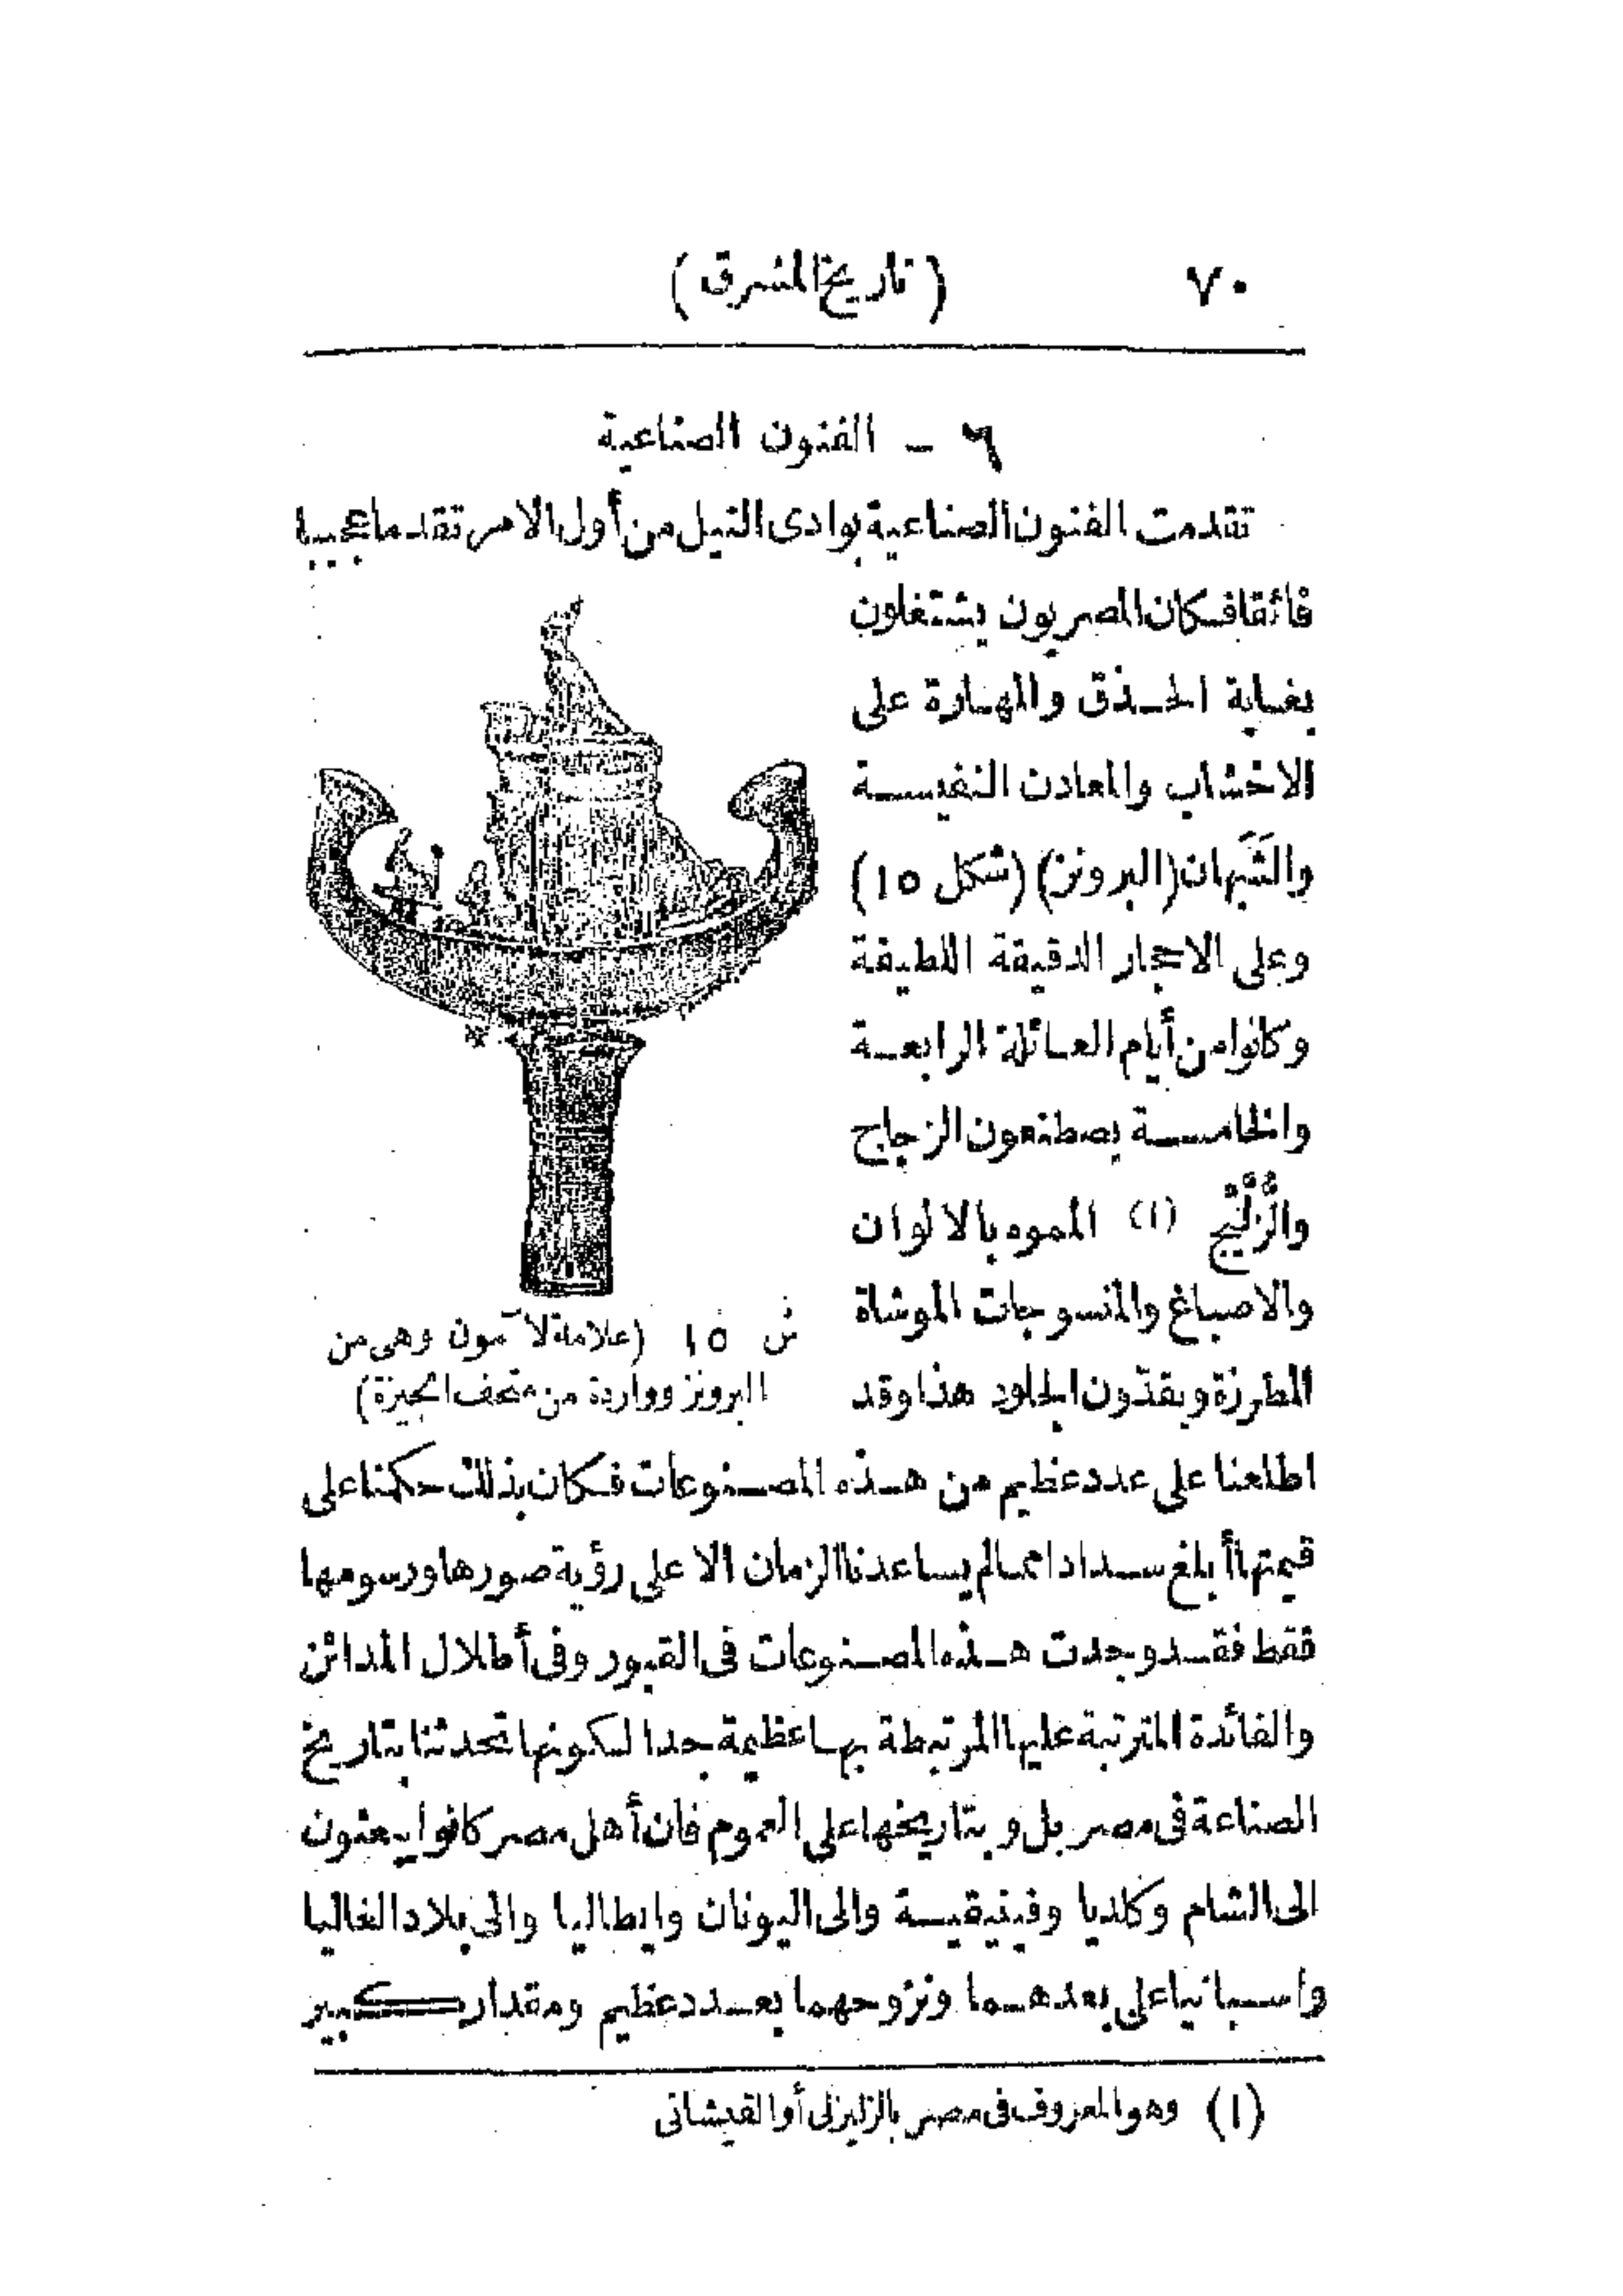 ٧٠ (تاريخ المشرق)
٦ - الفنون الصناعية
تقدمت الفنون الصناعية بوادى النيل من أول الامر تقدما عجيبا
فائقا فكان المصريون يشتغلون
بغاية الحذق والمهارة على
الاخشاب والمعادن النفيسة
والشَبَهان (البرونز) (شكل ١٥)
وعلى الاحجار الدقيقة اللطيفة
وكانوا من أيام العائلة الرابعة
والخامسة يصطنعون الزجاج
والزُّلَّيْج (١) المموه بالالوان
والاصباغ والمنسوجات الموشاة
المطرزة ويقدّون الجلود هذا وقد
ش ١٥ (علامة لآمون وهى من
البرونز وواردة من متحف الجيزة)
اطلعنا على عدد عظيم من هذه المصنوعات فكان بذلك حكمنا على
قيمتها أبلغ سدادا مما لم يساعدنا الزمان الا على رؤية صورها ورسومها
فقط فقد وجدت هذه المصنوعات فى القبور وفى أطلال المدائن
والفائدة المترتبة عليها المرتبطة بها عظيمة جدا لكونها تحدثنا بتاريخ
الصناعة فى مصر بل وبتاريخها على العموم فان أهل مصر كانوا يبعثون
الى الشام وكلديا وفينيقية والى اليونان وايطاليا والى بلاد الغاليا
واسبانيا على بعدهما ونزوحهما بعدد عظيم ومقدار كبير
(١) وهو المعروف فى مصر بالزليزلى أو القيشانى